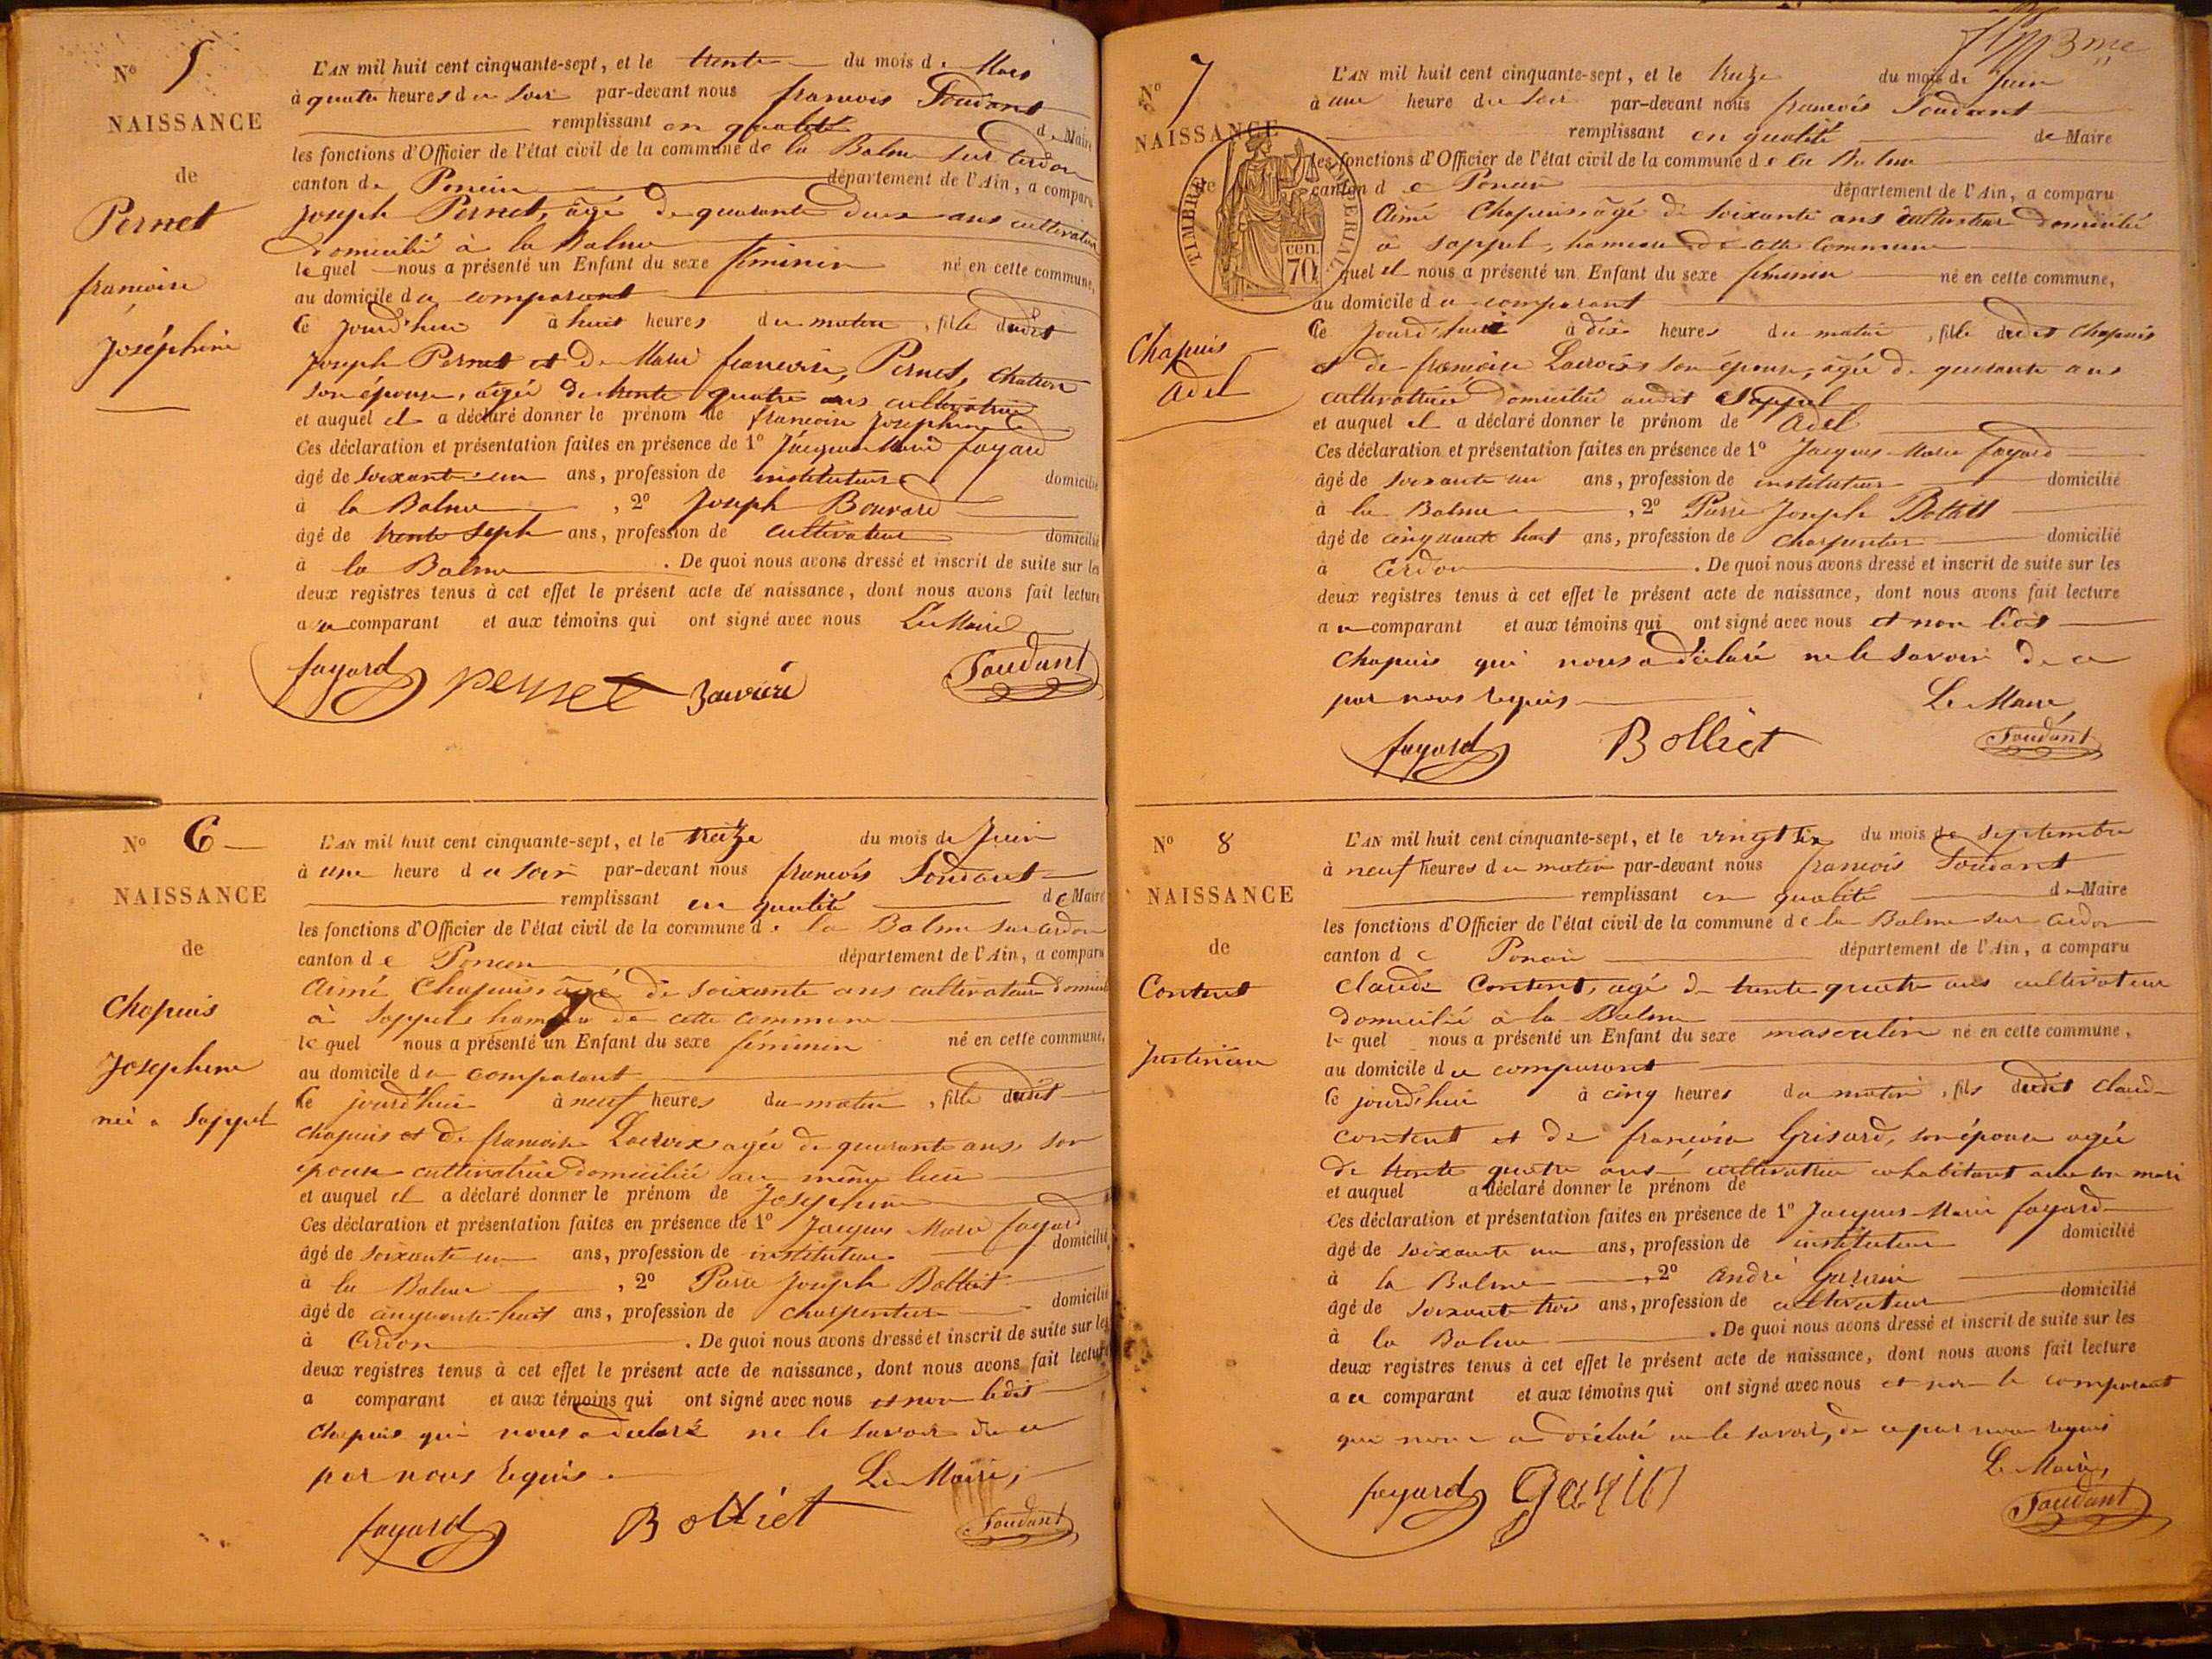 N° 5
NAISSANCE
de
Pernet
francoise
Joséphine
L'AN mil huit cent cinquante-sept, et le trente du mois de Mars
à quatre heures du soir par-devant nous francois Soudant
remplissant en qualité de Maire
les fonctions d'Officier de l'état civil de la commune de la Balme sur Cerdon
canton de Poncin département de l'Ain, a comparu
Joseph Pernet, âgé de quarante deux ans cultivateur
domicilié à la Balme
lequel nous a présenté un Enfant du sexe féminin né en cette commune,
au domicile du comparant
ce jourd'hui à huit heures du matin, fille dudit
Joseph Pernet et de Marie francoise, Pernet, Chatron
son épouse, âgée de trente quatre ans cultivatrice
et auquel il a déclaré donner le prénom de francoise Josephine
Ces déclaration et présentation faites en présence de 1° Jacques Marie fayard
âgé de soixante un ans, profession de instituteur domicilié
à la Balme, 2° Joseph Bouvard
âgé de trente sept ans, profession de cultivateur domicilié
à la Balme. De quoi nous avons dressé et inscrit de suite sur les
deux registres tenus à cet effet le présent acte de naissance, dont nous avons fait lecture
au comparant et aux témoins qui ont signé avec nous Le Maire
fayard pernet Soudant
N° 6
NAISSANCE
de
Chapuis
Josephine
née a Soppel
L'AN mil huit cent cinquante-sept, et le treize du mois de Juin
à une heure du soir par-devant nous francois Soudant
remplissant en qualité de Maire
les fonctions d'Officier de l'état civil de la commune de la Balme sur Cerdon
canton de Poncin département de l'Ain, a comparu
Aimé Chapuis âgé de soixante ans cultivateur domicilié
à Soppel hameau de cette commune
lequel nous a présenté un Enfant du sexe féminin né en cette commune,
au domicile du comparant
ce jourd'hui à neuf heures du matin, fille dudit
Chapuis et de francoise Lacroix agée de quarante ans, son
épouse cultivatrice domiciliée au même lieu
et auquel il a déclaré donner le prénom de Josephine
Ces déclaration et présentation faites en présence de 1° Jacques Marie fayard
âgé de soixante un ans, profession de instituteur domicilié
à la Balme, 2° Pierre Joseph Bolliet
âgé de cinquante huit ans, profession de charpentier domicilié
à Cerdon. De quoi nous avons dressé et inscrit de suite sur les
deux registres tenus à cet effet le présent acte de naissance, dont nous avons fait lecture
a comparant et aux témoins qui ont signé avec nous et non ledit
Chapuis qui nous a déclaré ne le savoir de ce
par nous requis. Le Maire,
fayard Bolliet Soudant
3me
N° 7
NAISSANCE
de
TIMBRE IMPERIAL
70 cen
Chapuis
Adel
L'AN mil huit cent cinquante-sept, et le treize du mois de Juin
à une heure du soir par-devant nous francois Soudant
remplissant en qualité de Maire
les fonctions d'Officier de l'état civil de la commune de la Balme
canton de Poncin département de l'Ain, a comparu
Aimé Chapuis âgé de soixante ans cultivateur domicilié
à Soppel, hameau de cette commune
quel il nous a présenté un Enfant du sexe féminin né en cette commune,
au domicile du comparant
ce jourd'hui à dix heures du matin, fille dudit Chapuis
et de francoise Lacroix son épouse, agée de quarante ans
cultivatrice domiciliée audit Soppel
et auquel il a déclaré donner le prénom de Adel
Ces déclaration et présentation faites en présence de 1° Jacques Marie fayard
âgé de soixante un ans, profession de instituteur domicilié
à la Balme, 2° Pierre Joseph Bolliet
âgé de cinquante huit ans, profession de charpentier domicilié
à Cerdon. De quoi nous avons dressé et inscrit de suite sur les
deux registres tenus à cet effet le présent acte de naissance, dont nous avons fait lecture
au comparant et aux témoins qui ont signé avec nous et non ledit
Chapuis qui nous a déclaré ne le savoir de ce
par nous requis Le Maire,
fayard Bolliet Soudant
N° 8
NAISSANCE
de
Content
L'AN mil huit cent cinquante-sept, et le vingt six du mois de septembre
à neuf heures du matin par-devant nous francois Soudant
remplissant en qualité de Maire
les fonctions d'Officier de l'état civil de la commune de la Balme sur Cerdon
canton de Poncin département de l'Ain, a comparu
Claude Content, agé de trente quatre ans cultivateur
domicilié à la Balme
le quel nous a présenté un Enfant du sexe masculin né en cette commune,
au domicile du comparant
ce jourd'hui à cinq heures du matin, fils dudit Claude
Content et de francoise Grisard, son épouse agée
de trente quatre ans cultivatrice cohabitant avec son mari
et auquel a déclaré donner le prénom de
Ces déclaration et présentation faites en présence de 1° Jacques Marie fayard
âgé de soixante un ans, profession de instituteur domicilié
à la Balme, 2° André Garin
âgé de soixante trois ans, profession de cultivateur domicilié
à la Balme. De quoi nous avons dressé et inscrit de suite sur les
deux registres tenus à cet effet le présent acte de naissance, dont nous avons fait lecture
au comparant et aux témoins qui ont signé avec nous et non le comparant
qui nous a déclaré ne le savoir, de ce par nous requis
Le Maire,
fayard Garin Soudant